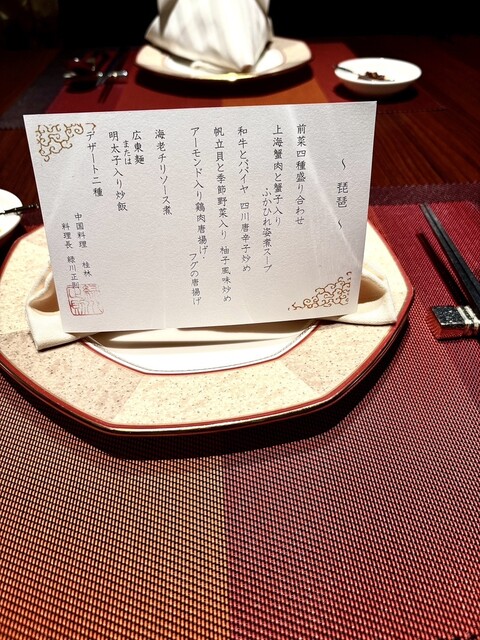 ～ 琵琶 ～
前菜四種盛り合わせ
上海蟹肉と蟹子入り
ふかひれ姿煮スープ
和牛とパパイヤ 四川唐辛子炒め
帆立貝と季節野菜入り 柚子風味炒め
アーモンド入り鶏肉唐揚げ・
フグの唐揚げ
海老チリソース煮
広東麺
または
明太子入り炒飯
デザート二種
中国料理 桂林
料理長 緑川正則